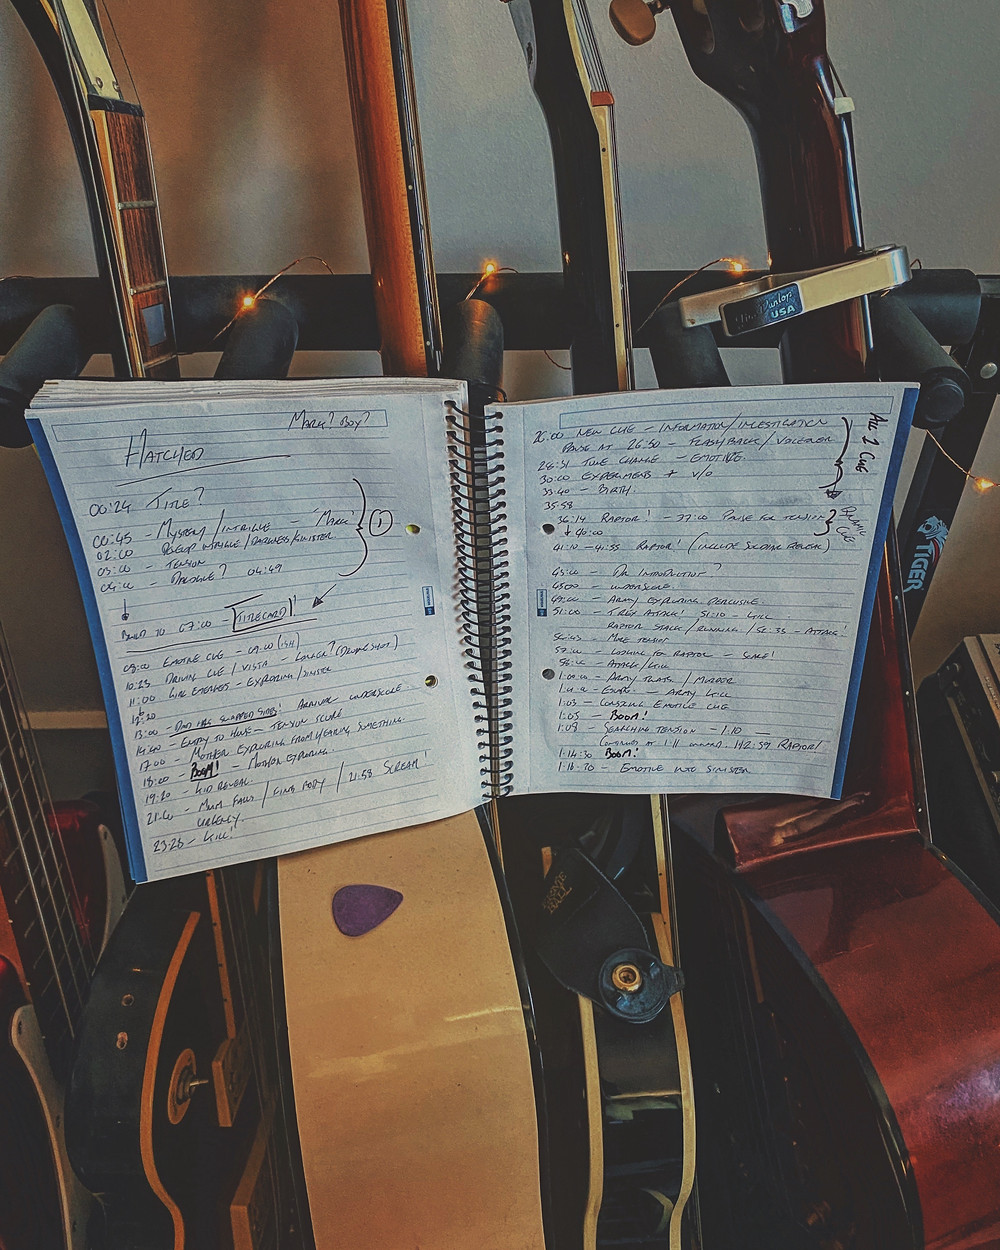 MARK? BOY?
HATCHED
00:24 TITLE?
00:45 - MYSTERY / INTRIGUE - "MARK!"
02:00 DEVELOP INTRIGUE / DARKNESS / SINISTER
03:00 - TENSION
04:00 - DIALOGUE? 04:49
1
BUILD TO 07:00 - TITLECARD!
08:00 EMOTIVE CUE - 09:00 (ISH)
10:23 DRIVING CUE / VISTA - LONGER? (DRONE SHOT)
11:00 GIRL EMERGES - EXPLORING / SINISTER
12:20
13:00 - DAD HAS SWAPPED SIDES! ARRIVAL - UNDERSCORE.
14:00 - ENTRY TO HOUSE - TENSION SCORE
17:00 - MOTHER EXPLORING FROM HEARING SOMETHING.
18:00 - BOOM! - MOTHER EXPLORING.
19:20 - KID REVEAL.
21:00 - MUM FALLS / FINDS BODY / 21:58 SCREAM!
URGENCY.
23:28 - KILL!
26:00 NEW CUE - INFORMATION / INVESTIGATION
PAUSE AT 26:50 - FLASHBACK / VOICEOVER
28:31 TUNE CHANGE - EMOTIVE.
30:00 EXPERIMENTS + V/O
33:40 - BIRTH.
ALL 1 CUE
35:58
36:14 RAPTOR! - 37:00 PAUSE FOR TENSION
↓ 40:00
41:10 - 41:55 RAPTOR! (INCLUDE SOLDIER REVEAL)
CUE
43:00 - DR INTRODUCTION?
45:00 - UNDERSCORE
49:00 - ARMY EXPLORING PERCUSSIVE.
51:00 - T REX ATTACK! 51:10 - KILL.
RAPTOR STALK / RUNNING / 52:35 - ATTACK!
- MORE TENSION
57:00 - LOOKING FOR RAPTOR - SCARE!
- ATTACK / KILL
1:00:00 - ARMY / MURDER
- ARMY KILL
1:03 - EMOTIVE CUE
1:05 - BOOM!
1:08 - SEARCHING TENSION - 1:10
CONTINUES AT 1:11 1:12:59 RAPTOR!
1:14:30 BOOM!
1:16:20 - EMOTIVE INTO SINISTER
Jim Dunlop
USA
TIGER
ERNIE BALL